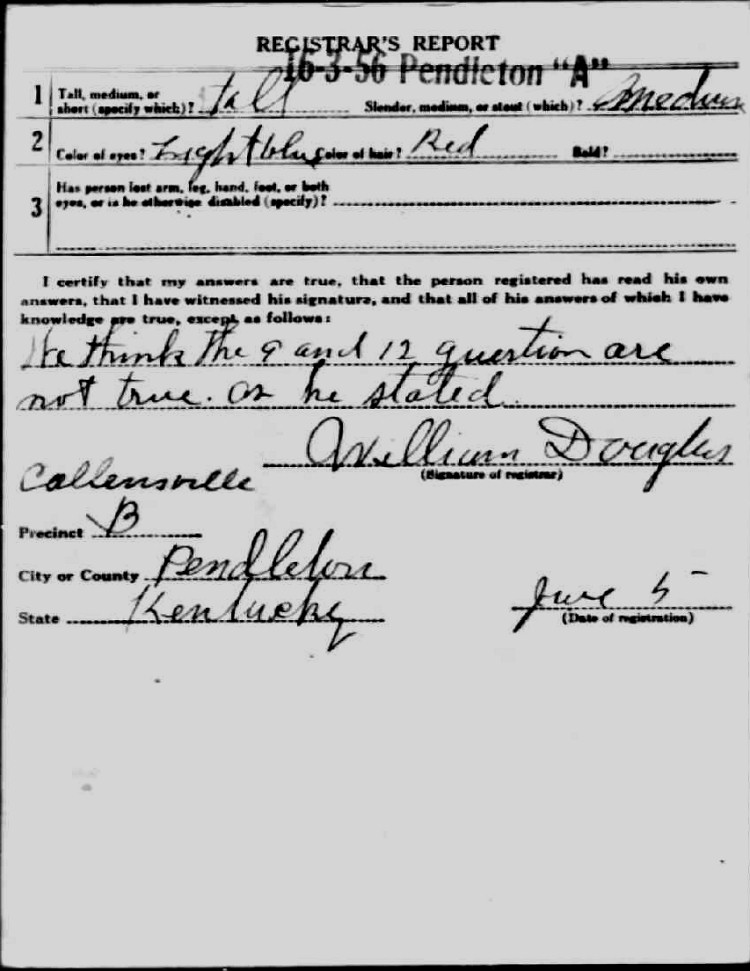 REGISTRAR'S REPORT
16-3-56 Pendleton "A"
1 Tall, medium, or short (specify which)? Tall Slender, medium, or stout (which)? medium
2 Color of eyes? Light blue Color of hair? Red Bald?
3 Has person lost arm, leg, hand, foot, or both
eyes, or is he otherwise disabled (specify)?
I certify that my answers are true, that the person registered has read his own
answers, that I have witnessed his signature, and that all of his answers of which I have
knowledge are true, except as follows:
We think the 9 and 12 question are
not true. as he stated.
William Douglas
(Signature of registrar)
Callensville
Precinct B
City or County Pendleton
State Kentucky
June 5
(Date of registration)